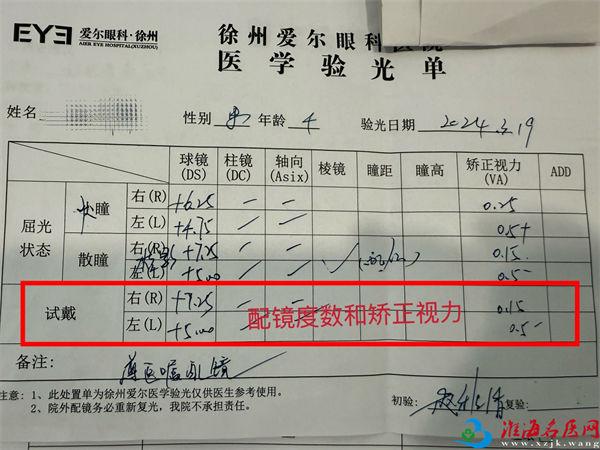 EYE 爱尔眼科·徐州
AIER EYE HOSPITAL(XUZHOU)
徐州爱尔眼科医院
医学验光单
姓名 性别 男 年龄 4 验光日期 2024.3.19
球镜(DS) 柱镜(DC) 轴向(Asix) 棱镜 瞳距 瞳高 矫正视力(VA) ADD
屈光状态 小瞳 右(R) +6.25 — — 0.25
左(L) +4.75 — — 0.5+
散瞳 右(R) +7.25 — — 0.15
左(L) +5.00 — — 0.5-
试戴 右(R) +7.25 — — 0.15
左(L) +5.00 — — 0.5-
配镜度数和矫正视力
备注: 遵医嘱配镜
注意: 1、此处置单为徐州爱尔医学验光仅供医生参考使用。
2、院外配镜务必重新复光，我院不承担责任。
初验: 复验:
淮海名医网
www.xzjk.wang